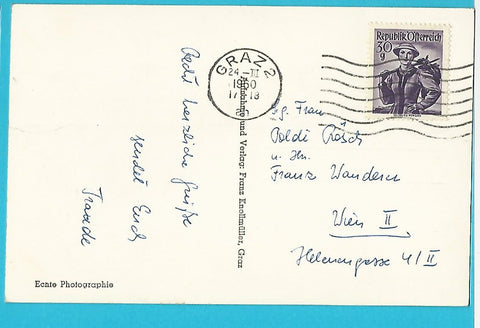 Recht herzliche Grüße
sendet Euch
Traude
Echte Photographie
Aufnahme und Verlag: Franz Knollmüller, Graz
GRAZ 2
24 - III
1950
17-18
Republik Österreich
30
g
Frau
Poldi
u. Hr.
Franz Wanderer
Wien II
Helenengasse 4/II